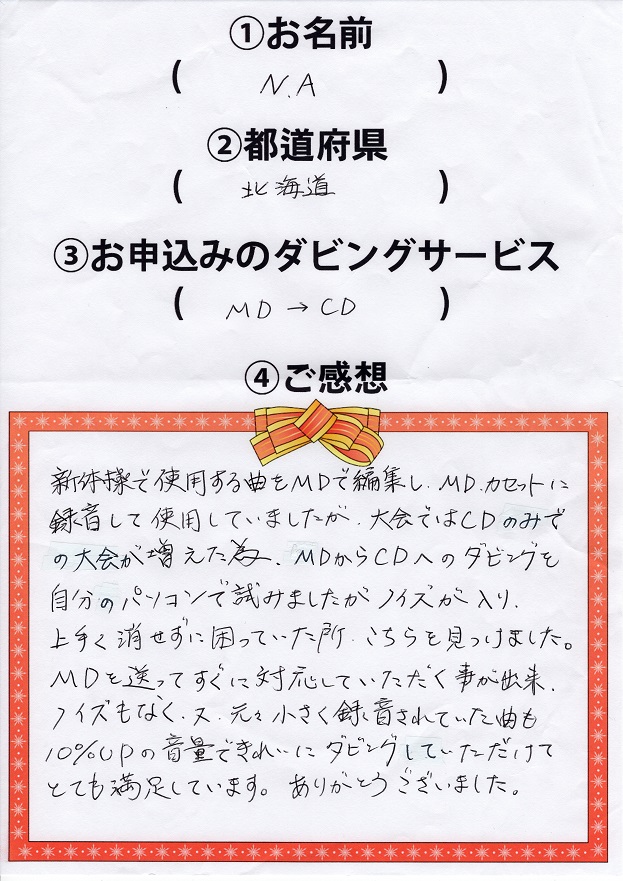 ①お名前
( N.A )
②都道府県
( 北海道 )
③お申込みのダビングサービス
( MD→CD )
④ご感想
新体操で使用する曲をMDで編集し、MD.カセットに
録音して使用していましたが、大会ではCDのみで
の大会が増えた為、MDからCDへのダビングを
自分のパソコンで試みましたがノイズが入り、
上手く消せずに困っていた所、こちらを見つけました。
MDを送ってすぐに対応していただく事が出来、
ノイズもなく、又、元々小さく録音されていた曲も
10%UPの音量できれいにダビングしていただけて
とても満足しています。ありがとうございました。